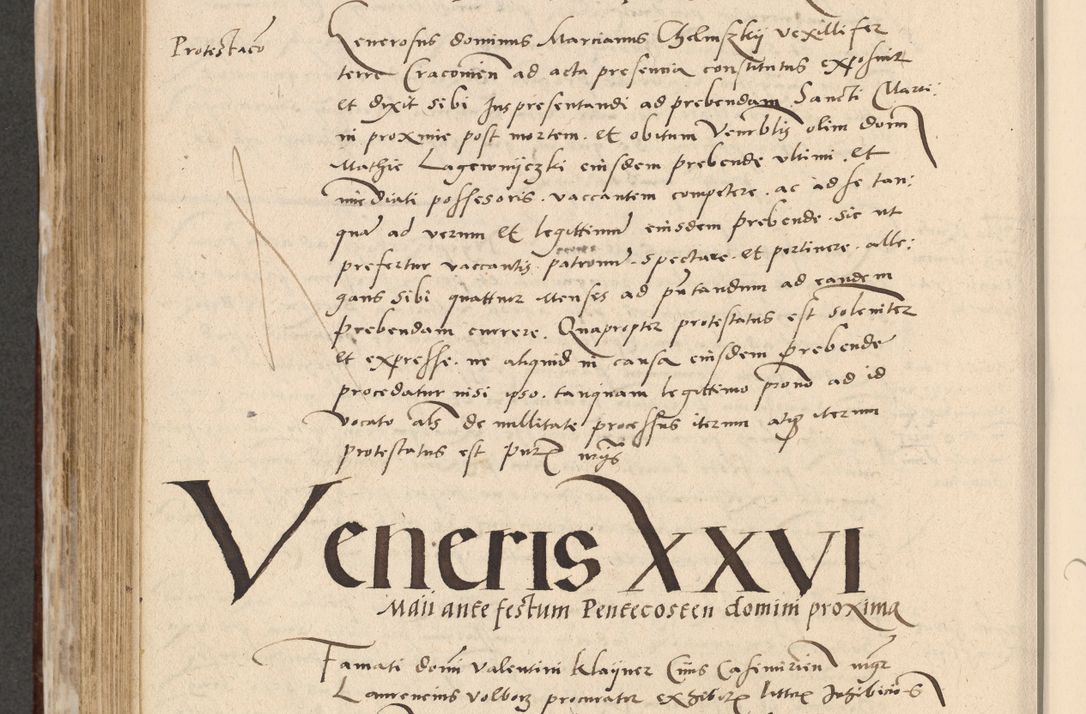 Protestacio
Generosus dominus Marcianus Chelmszkij vexillifer
terre Cracovien ad acta presencia constitutus exposuit
et dixit sibi Juspresentandi ad prebendam Sancti Marti:
ni proxime post mortem. et obitum Venerblis olim domi
Mathie Lagewnijczki eiusdem prebende ultimi. et
immediati possessoris. vaccantem competere. ac ad se tan:
quam ad verum et legittimum eiusdem prebende. sic ut
prefertur vaccantis patronum. spectare. et pertinere. alle:
gans sibi quattuor Menses ad presentandum ad eandem
prebendam currere. Quapropter protestatus est solenniter
et expresse. ne aliquid in causa eiusdem prebende
procedatur nisi ipso. tanquam legittimo patrono ad id
vocato als de nullitate processus iterum atque iterum
protestatus est
Veneris XXVI
Maii ante festum Pentecosten domini proxima
Famati domini Valentini Klayner Civis Casimirien
Laurencius Volborz procurator exhibitis litteris Inhibicionis